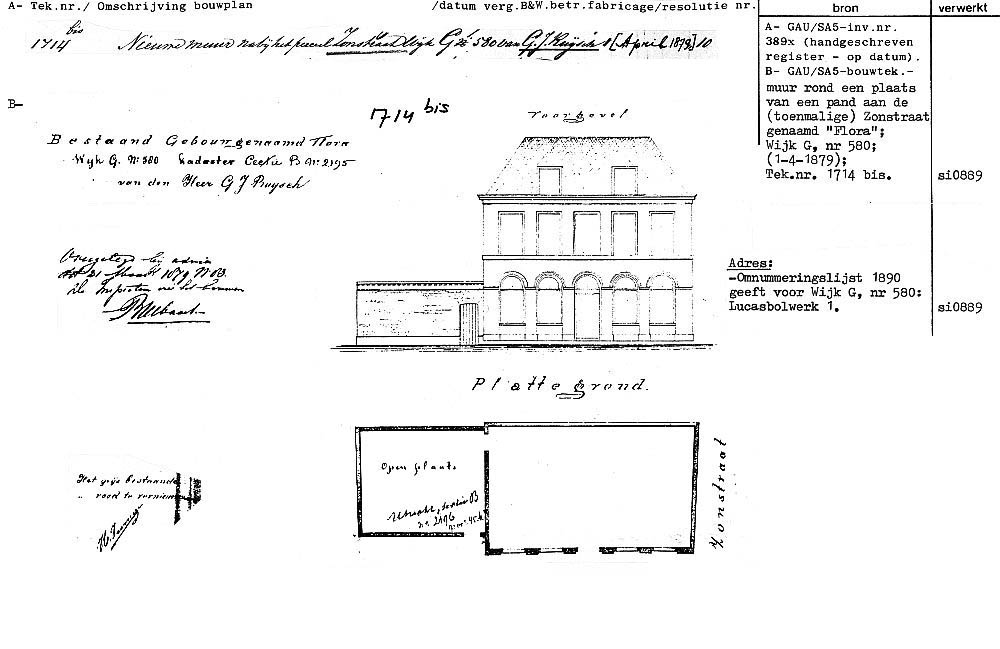 A- Tek.nr./ Omschrijving bouwplan /datum verg.B&W.betr.fabricage/resolutie nr.
bron
verwerkt
1714 bis Nieuwe muur nabij het perceel Zonstraat Wijk G nr. 580 van G. J. Ruijsch 1 [April 1879] 10
A- GAU/SA5-inv.nr.
389x (handgeschreven
register - op datum).
B- GAU/SA5-bouwtek.-
muur rond een plaats
van een pand aan de
(toenmalige) Zonstraat
genaamd "Flora";
Wijk G, nr 580;
(1-4-1879);
Tek.nr. 1714 bis.
si0889
B-
1714 bis
Voorgevel
Bestaand Gebouw genaamd Flora
Wijk G. No 580 Kadaster Sectie B No 2195
van den Heer G J Ruysch
21 Maart 1879
Adres:
-Omnummeringslijst 1890
geeft voor Wijk G, nr 580:
Lucasbolwerk 1.
si0889
Platte grond.
Open plaats
Utrecht, Sectie B
no 2196
Zonstraat
Het grijs bestaande
rood te vernieuwen